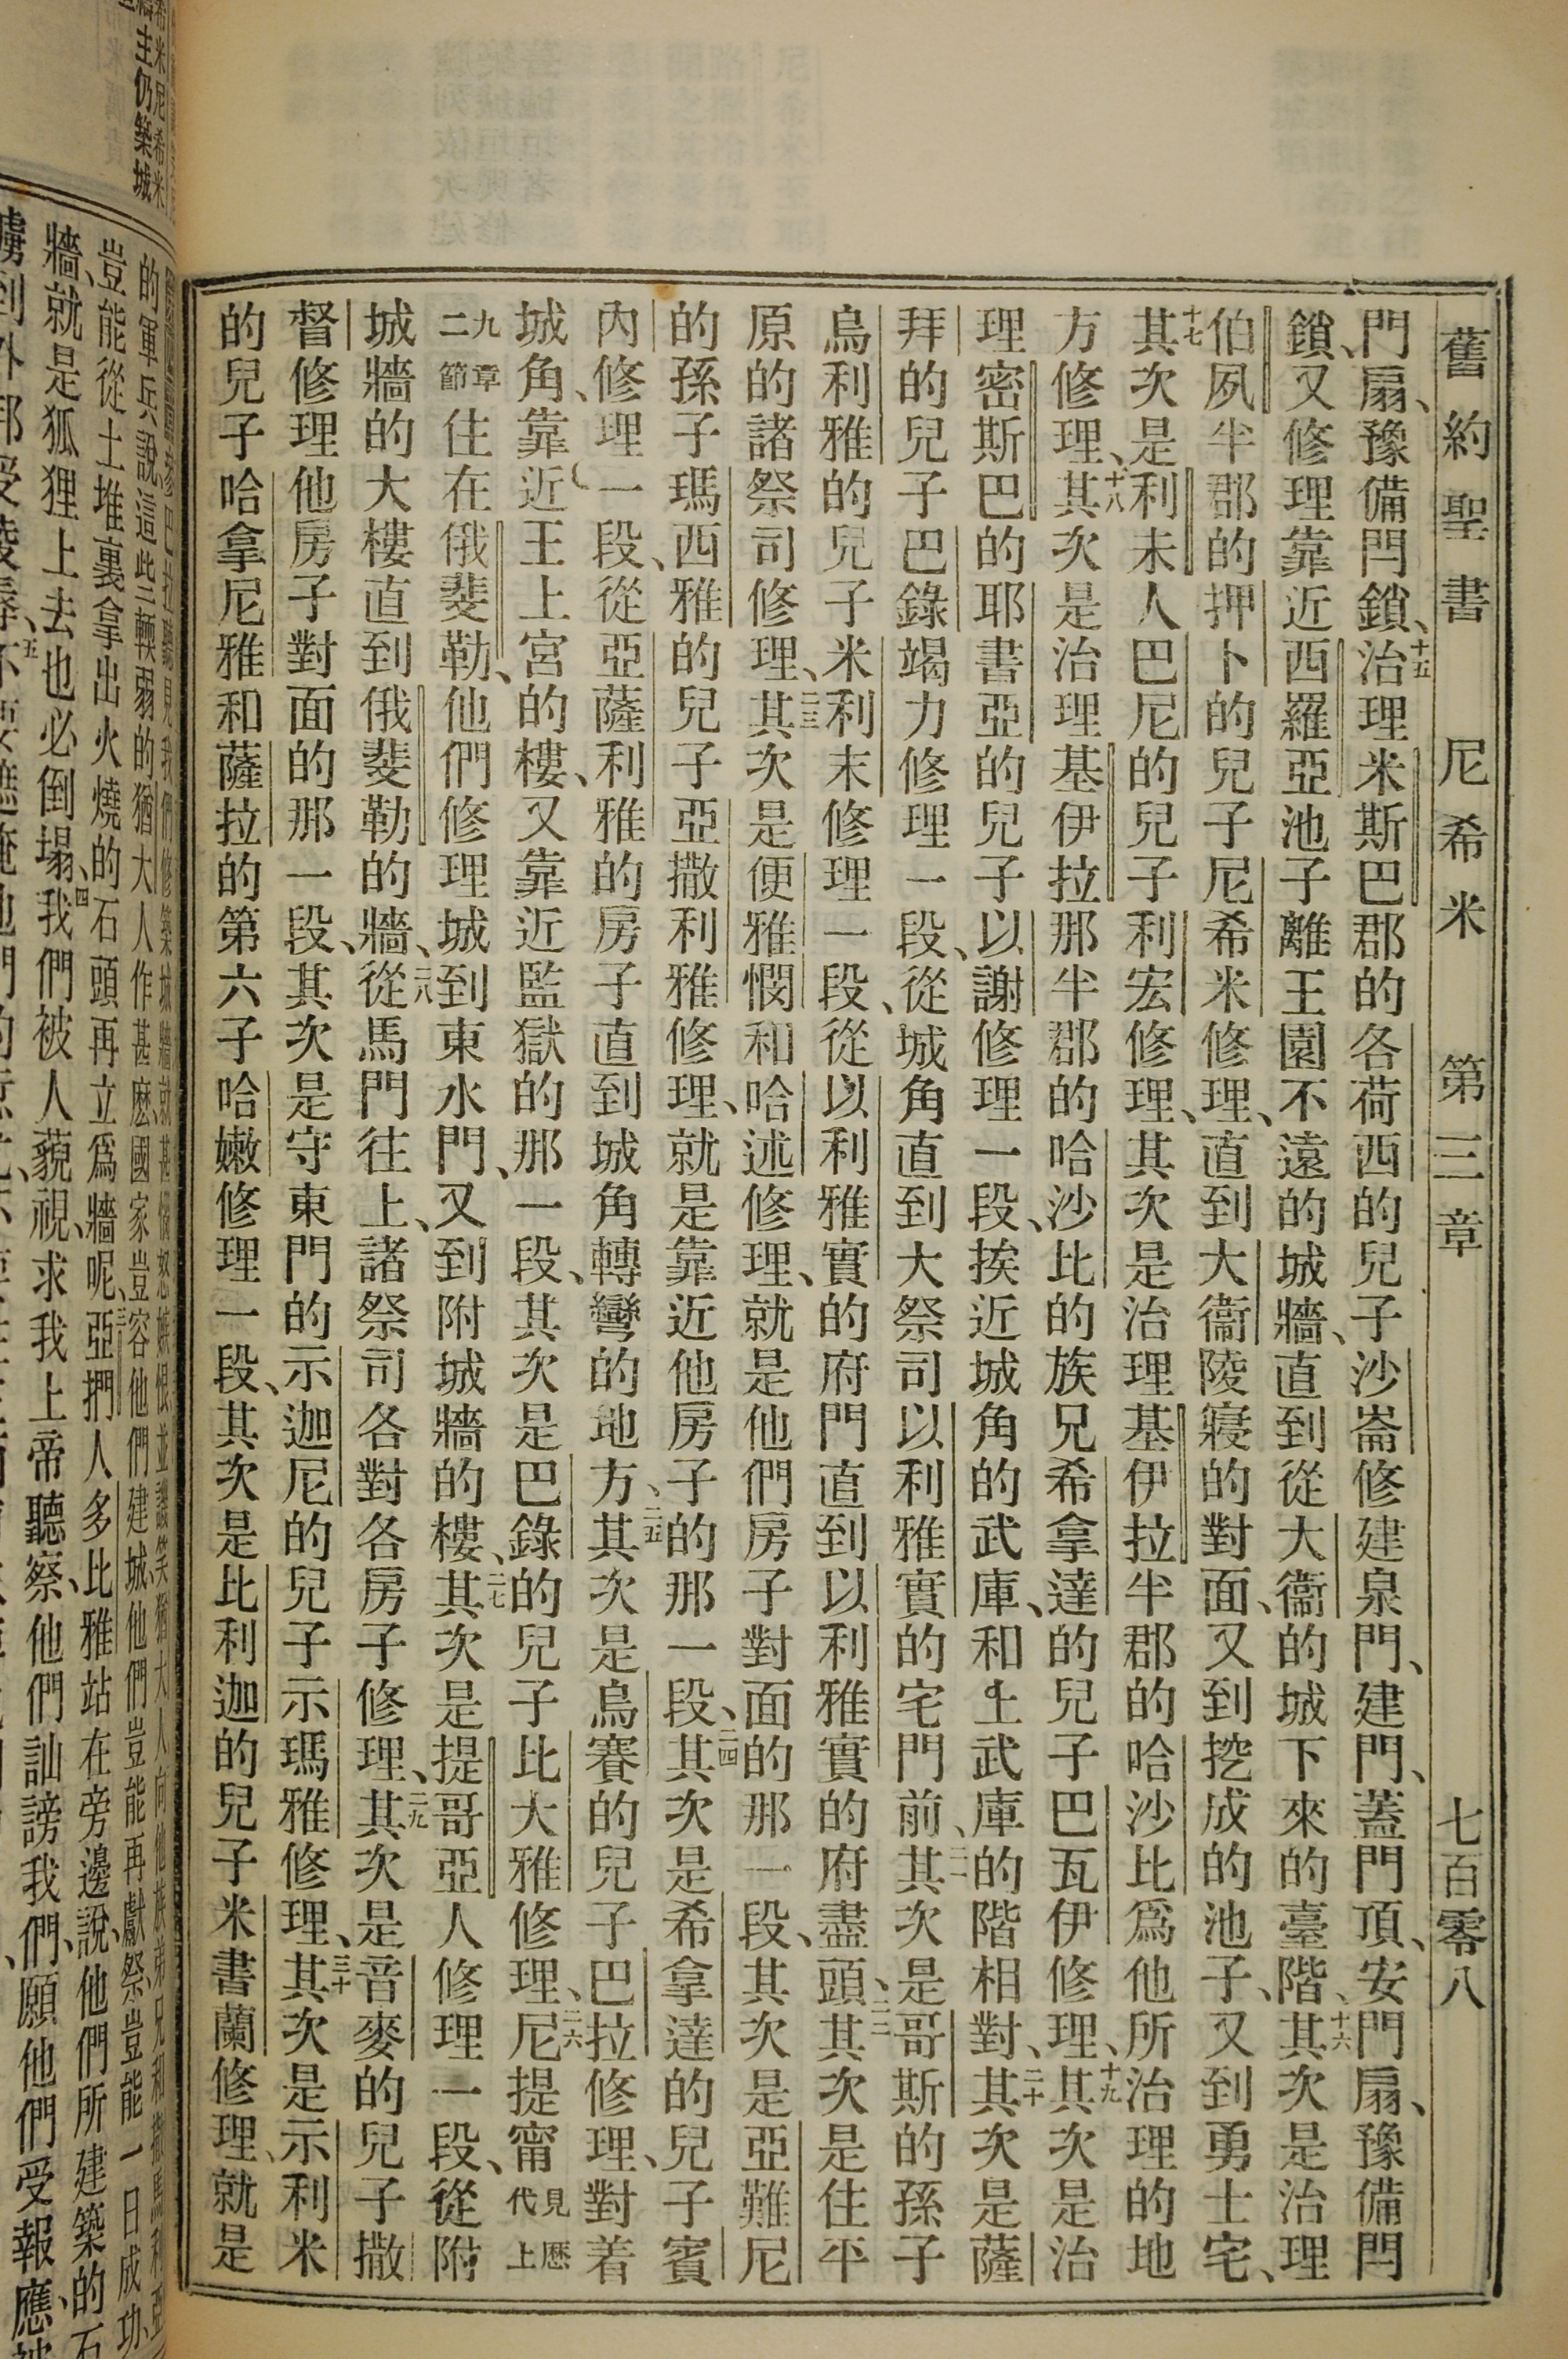 舊約聖書 尼希米 第三章 七百零八
門扇、豫備門鎖、十五治理米斯巴郡的各荷西的兒子沙崙修建泉門、建門、蓋門頂、安門扇、豫備門
鎖、又修理靠近西羅亞池子離王園不遠的城牆、直到從大衞的城下來的臺階、十六其次是治理
伯夙半郡的押卜的兒子尼希米修理、直到大衞陵寢的對面、又到挖成的池子、又到勇士宅、
十七其次是利未人巴尼的兒子利宏修理、其次是治理基伊拉半郡的哈沙比爲他所治理的地
方修理、十八其次是治理基伊拉那半郡的哈沙比的族兄希拿達的兒子巴瓦伊修理、十九其次是治
理密斯巴的耶書亞的兒子以謝修理一段、挨近城角的武庫、和上武庫的階相對、二十其次是薩
拜的兒子巴錄竭力修理一段、從城角直到大祭司以利雅實的宅門前、二一其次是哥斯的孫子
烏利雅的兒子米利末修理一段、從以利雅實的府門直到以利雅實的府盡頭、二二其次是住平
原的諸祭司修理、二三其次是便雅憫和哈述修理、就是他們房子對面的那一段、其次是亞難尼
的孫子瑪西雅的兒子亞撒利雅修理、就是靠近他房子的那一段、二四其次是希拿達的兒子賓
內修理一段、從亞薩利雅的房子直到城角轉彎的地方、二五其次是烏賽的兒子巴拉修理、對着
城角、靠近王上宮的樓、又靠近監獄的那一段、其次是巴錄的兒子比大雅修理、二六尼提甯見歷代上
九章二節住在俄斐勒、他們修理城到東水門、又到附城牆的樓、二七其次是提哥亞人修理一段、從附
城牆的大樓直到俄斐勒的牆、二八從馬門往上、諸祭司各對各房子修理、二九其次是音麥的兒子撒
督修理他房子對面的那一段、其次是守東門的示迦尼的兒子示瑪雅修理、三十其次是示利米
的兒子哈拿尼雅和薩拉的第六子哈嫩修理一段、其次是比利迦的兒子米書蘭修理、就是
主仍築城
的軍兵說、這些輭弱的猶大人作甚麽、國家豈容他們建城、他們豈能再獻祭、豈能一日成功、
豈能從土堆裏拿出火燒的石頭再立爲牆呢、三亞捫人多比雅站在旁邊說、他們所建築的石
牆、就是狐狸上去也必倒塌、四我們被人藐視、求我上帝聽察、他們訕謗我們、願他們受報應